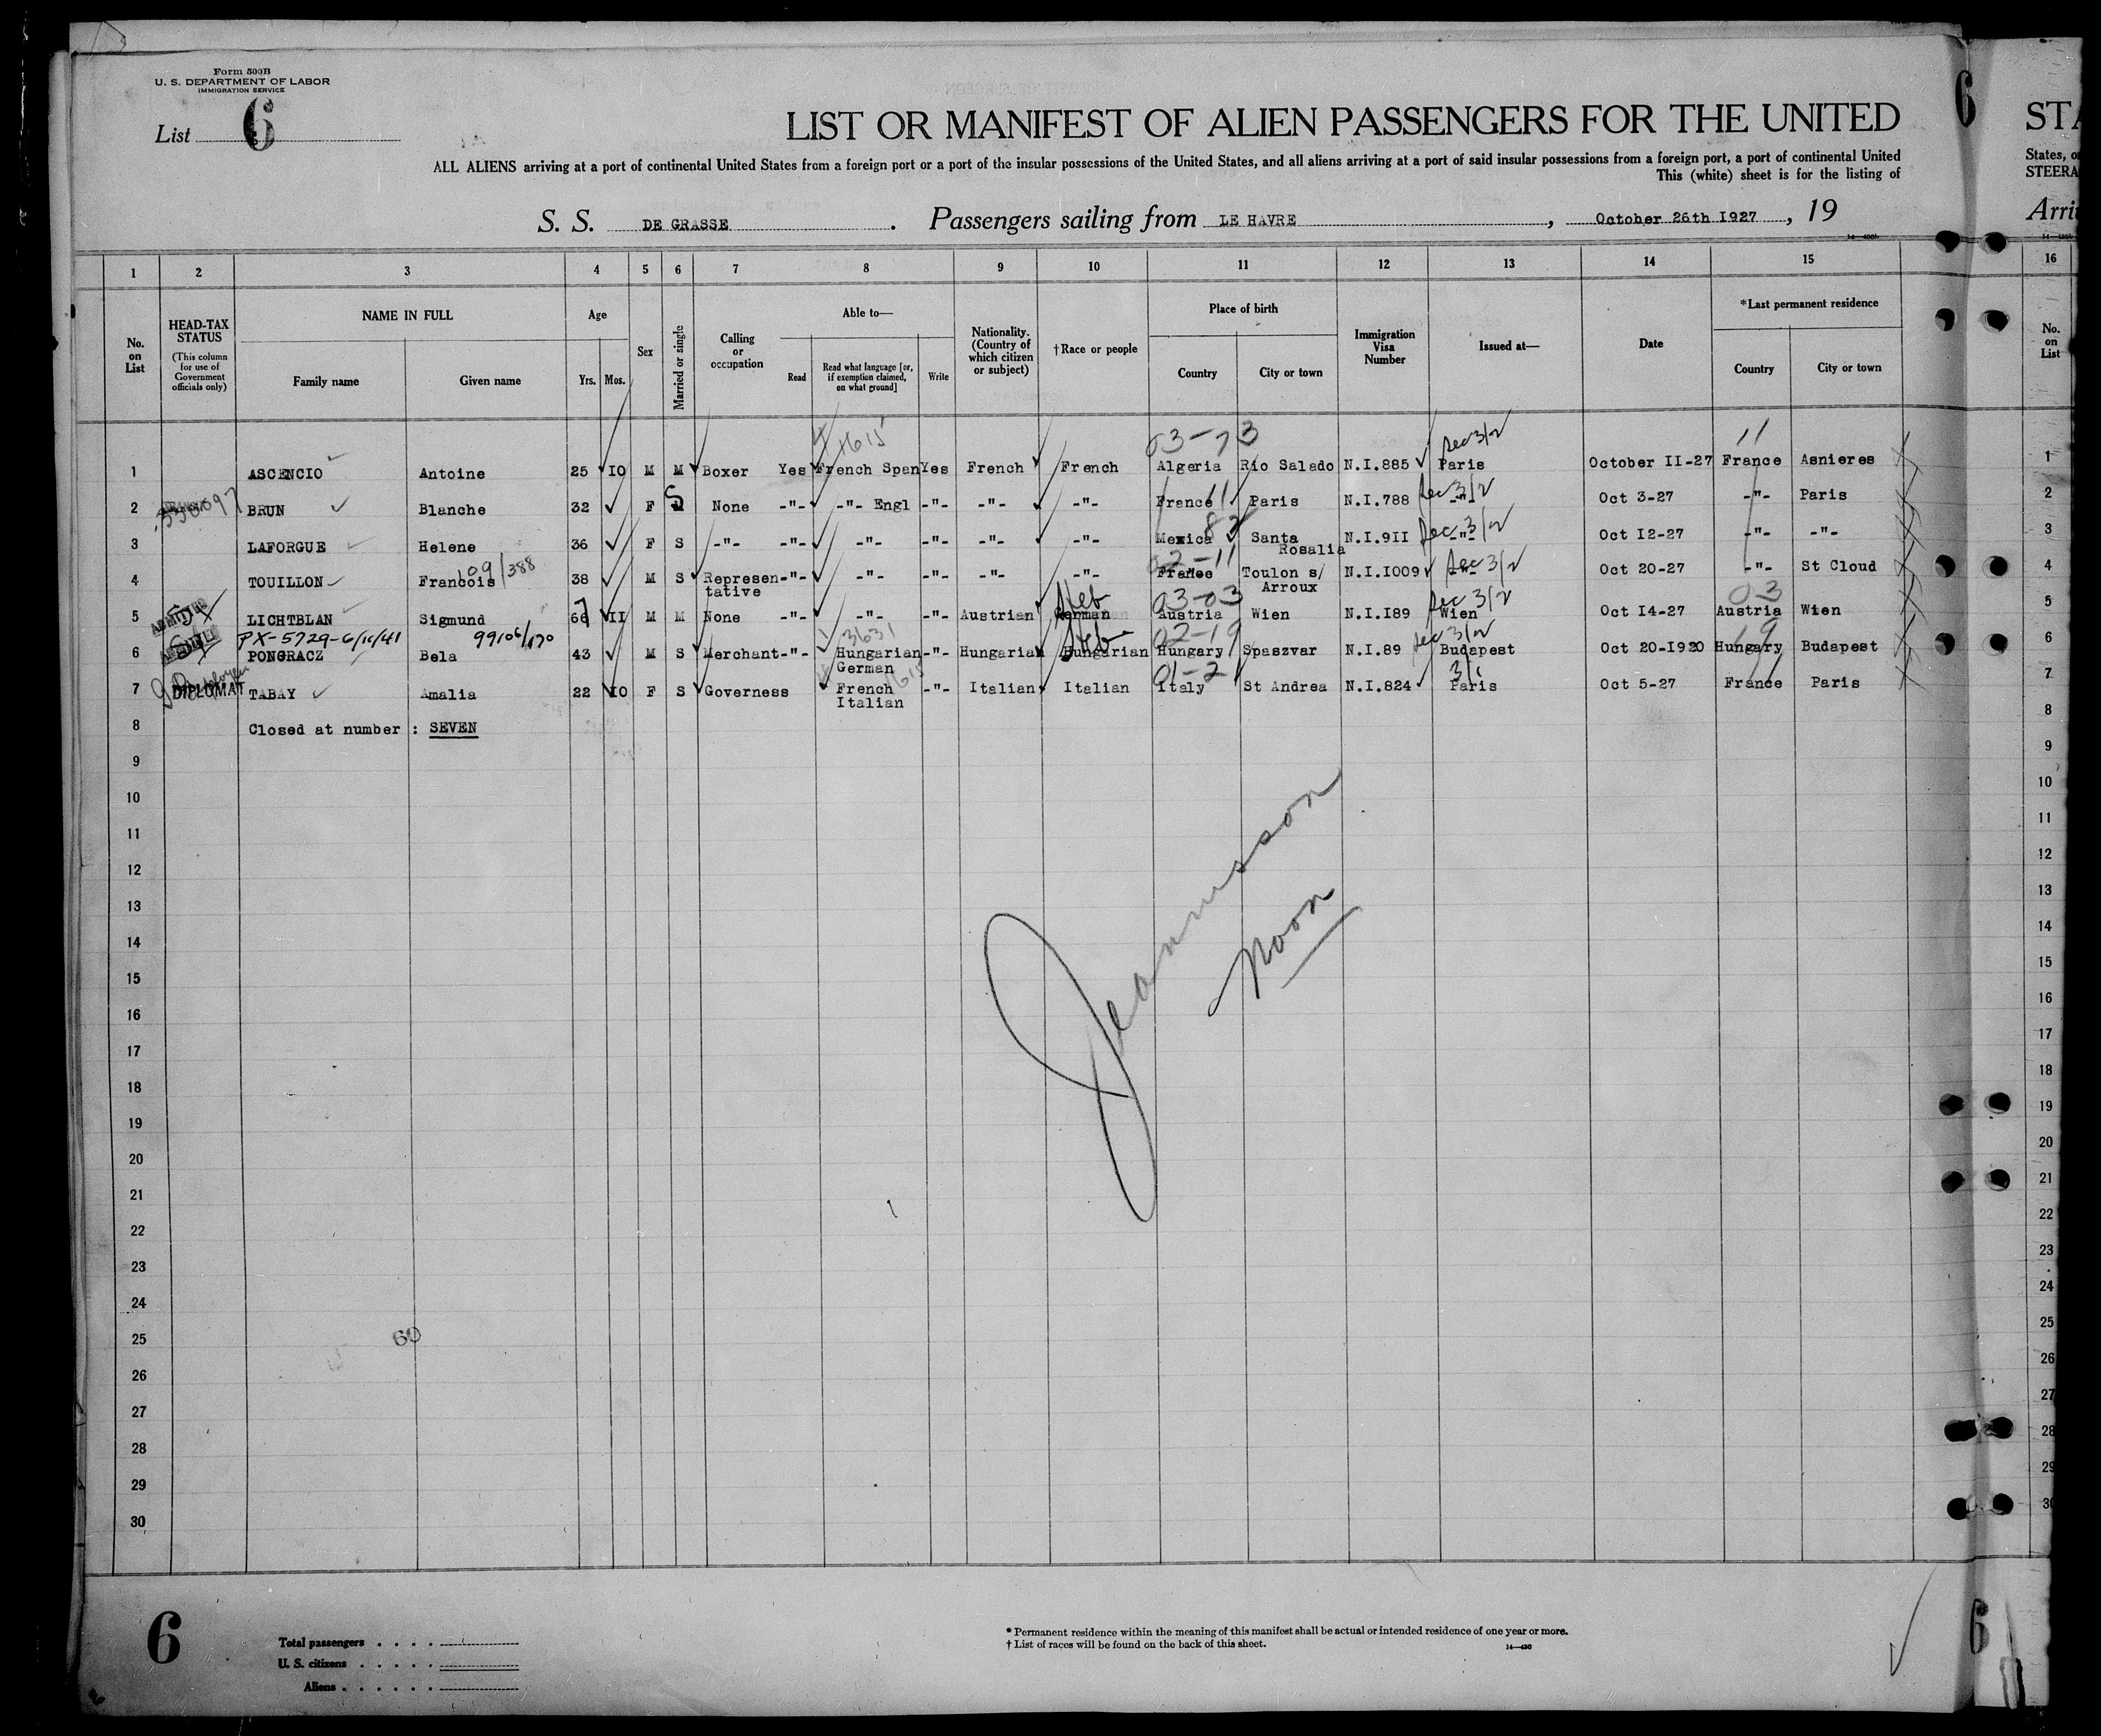 Form 500B
U. S. DEPARTMENT OF LABOR
IMMIGRATION SERVICE
List 6
LIST OR MANIFEST OF ALIEN PASSENGERS FOR THE UNITED
ALL ALIENS arriving at a port of continental United States from a foreign port or a port of the insular possessions of the United States, and all aliens arriving at a port of said insular possessions from a foreign port, a port of continental United
This (white) sheet is for the listing of
S. S. DE GRASSE . Passengers sailing from LE HAVRE , October 26th I927 , 19
1 2 3 4 5 6 7 8 9 10 11 12 13 14 15 16
No. on List
HEAD-TAX STATUS (This column for use of Government officials only)
NAME IN FULL Family name Given name
Age Yrs. Mos.
Sex
Married or single
Calling or occupation
Able to— Read Read what language [or, if exemption claimed, on what ground] Write
Nationality. (Country of which citizen or subject)
†Race or people
Place of birth Country City or town
Immigration Visa Number
Issued at—
Date
*Last permanent residence Country City or town
No. on List
1615 03-73 Sec 3/2 11
1 ASCENCIO Antoine 25 IO M M Boxer Yes French Span Yes French French Algeria Rio Salado N.I.885 Paris October II-27 France Asnieres 1
2 BRUN Blanche 32 F S None -"- -"- Engl -"- -"- -"- France 11 Paris N.I.788 Sec 3/2 -"- Oct 3-27 -"- Paris 2
3 LAFORGUE Helene 36 F S -"- -"- -"- -"- -"- -"- Mexico Santa Rosalia N.I.9II Sec 3/2 -"- Oct I2-27 -"- -"- 3
109/388 02-11
4 TOUILLON Francois 38 M S Representative -"- -"- -"- -"- -"- France Toulon s/ Arroux N.I.I009 -"- Sec 3/2 Oct 20-27 -"- St Cloud 4
Heb 03-03 Sec 3/2 03
5 LICHTBLAN Sigmund 66 II M M None -"- -"- -"- Austrian German Austria Wien N.I.I89 Wien Oct I4-27 Austria Wien 5
PX-5729-6/11/41 99106/170 3631 Heb 02-19 Sec 3/2 19
6 PONGRACZ Bela 43 M S Merchant -"- Hungarian German -"- Hungarian Hungarian Hungary Spaszvar N.I.89 Budapest Oct 20-I920 Hungary Budapest 6
DIPLOMAT 1615 01-2 3/2
7 TABAY Amalia 22 IO F S Governess French Italian -"- Italian Italian Italy St Andrea N.I.824 Paris Oct 5-27 France Paris 7
8 Closed at number : SEVEN 8
9 9
10 10
11 11
12 12
13 13
14 14
15 15
16 16
17 17
18 18
19 19
20 20
21 21
22 22
23 23
24 24
25 25
26 26
27 27
28 28
29 29
30 30
Noon
60
6
Total passengers
U. S. citizens
Aliens
* Permanent residence within the meaning of this manifest shall be actual or intended residence of one year or more.
† List of races will be found on the back of this sheet.
6
STA
States, o
STEERA
Arri
6